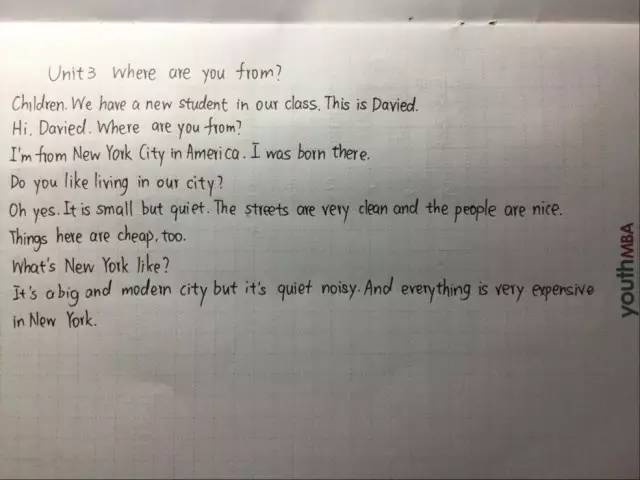 Unit 3 Where are you from?
Children. We have a new student in our class. This is Davied.
Hi. Davied. Where are you from?
I'm from New York City in America. I was born there.
Do you like living in our city?
Oh yes. It is small but quiet. The streets are very clean and the people are nice.
Things here are cheap, too.
What's New York like?
It's a big and modern city but it's quiet noisy. And everything is very expensive
in New York.
youthMBA